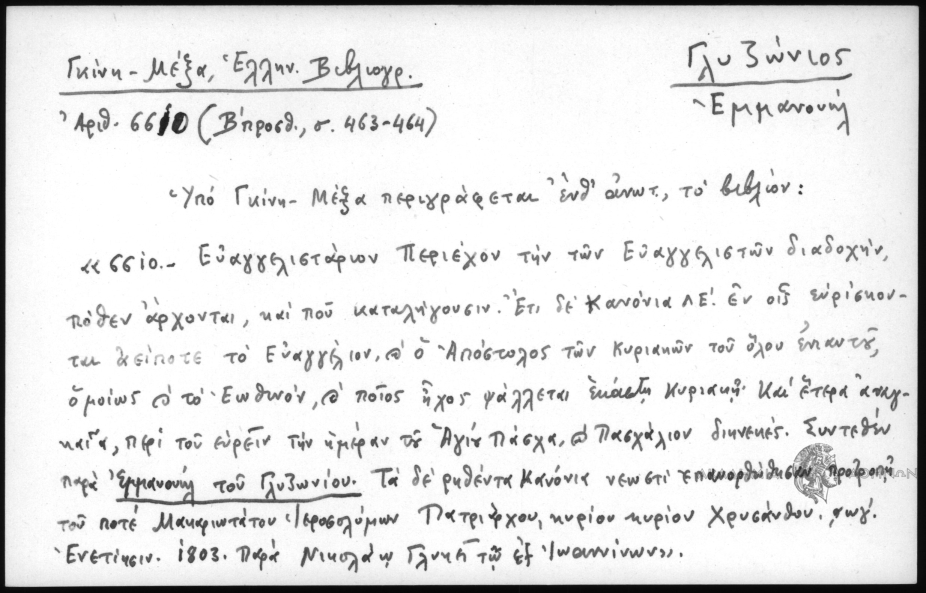 Γκίνη - Μέξα, Ἑλλην. Βιβλιογρ.
Ἀριθ. 6610 (Β' προσθ., σ. 463-464)
Γλυζώνιος
Ἐμμανουήλ
Ὑπό Γκίνη - Μέξα περιγράφεται ἐνθ' ἀνωτ., τό βιβλίον:
«6610.- Εὐαγγελιστάριον Περιέχον τήν τῶν Εὐαγγελιστῶν διαδοχήν,
πόθεν ἄρχονται, καί ποῦ καταλήγουσιν. Ἔτι δέ Κανόνια ΛΕ'. ἐν οἷς εὑρίσκον-
ται ἀείποτε τό Εὐαγγέλιον, ϗ ὁ Ἀπόστολος τῶν Κυριακῶν τοῦ ὅλου ἐνιαυτοῦ,
ὁμοίως ϗ τό Ἑωθινόν, ϗ ποῖος ἦχος ψάλλεται ἑκάστῃ Κυριακῇ. Καί ἕτερα ἀναγ-
καῖα, περί τοῦ εὑρεῖν τήν ἡμέραν τοῦ Ἁγίου Πάσχα, ϗ Πασχάλιον διηνεκές. Συντεθέν
παρά Ἐμμανουήλ τοῦ Γλυζωνίου. Τά δέ ρηθέντα Κανόνια νεωστί ἐπανορθώθησαν προτροπῇ
τοῦ ποτέ Μακαριωτάτου Ἱεροσολύμων Πατριάρχου, κυρίου κυρίου Χρυσάνθου. ͵αωγ'.
Ἐνετίῃσιν. 1803. Παρά Νικολάῳ Γλυκεῖ τῷ ἐξ Ἰωαννίνων».